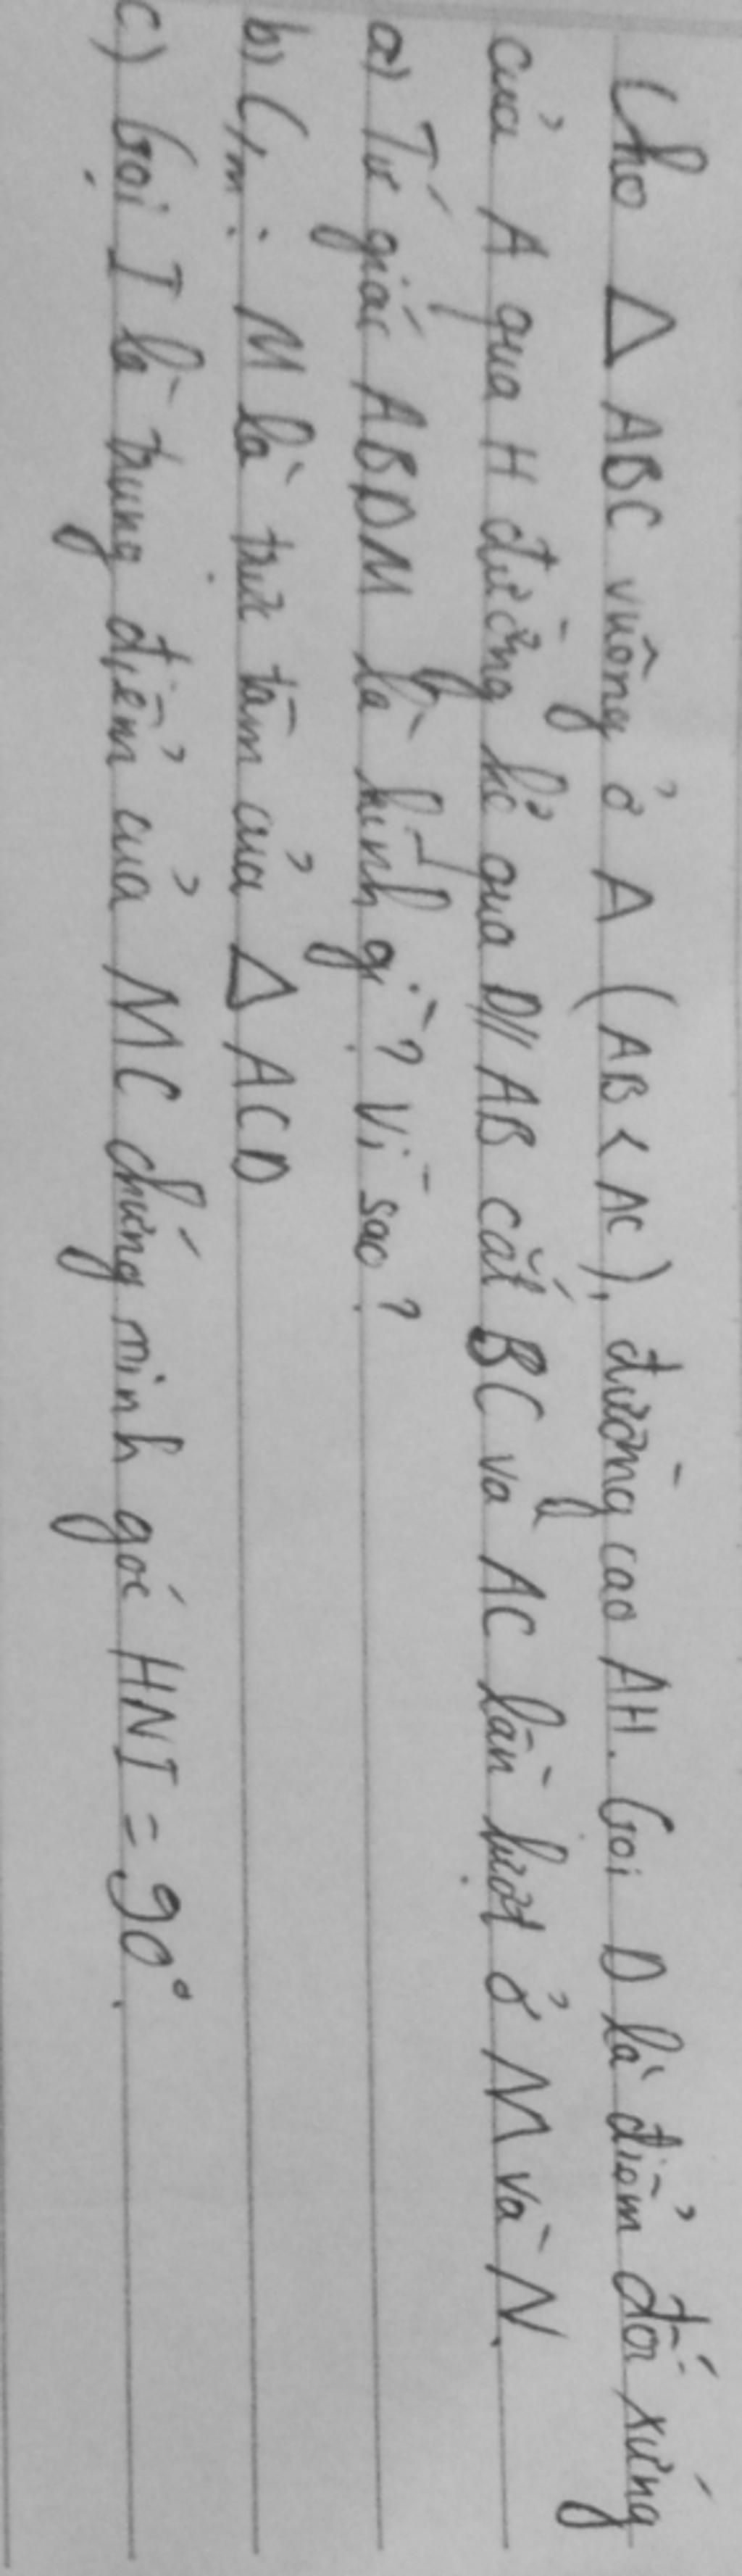 Cho △ ABC vuông ở A (AB < AC), đường cao AH. Gọi D là điểm đối xứng
của A qua H đường kẻ qua D // AB cắt BC và AC lần lượt ở M và N.
a) Tứ giác ABDM là hình gì? Vì sao?
b) C/m: M là trực tâm của △ ACD
c) Gọi I là trung điểm của MC chứng minh góc HNI = 90°.